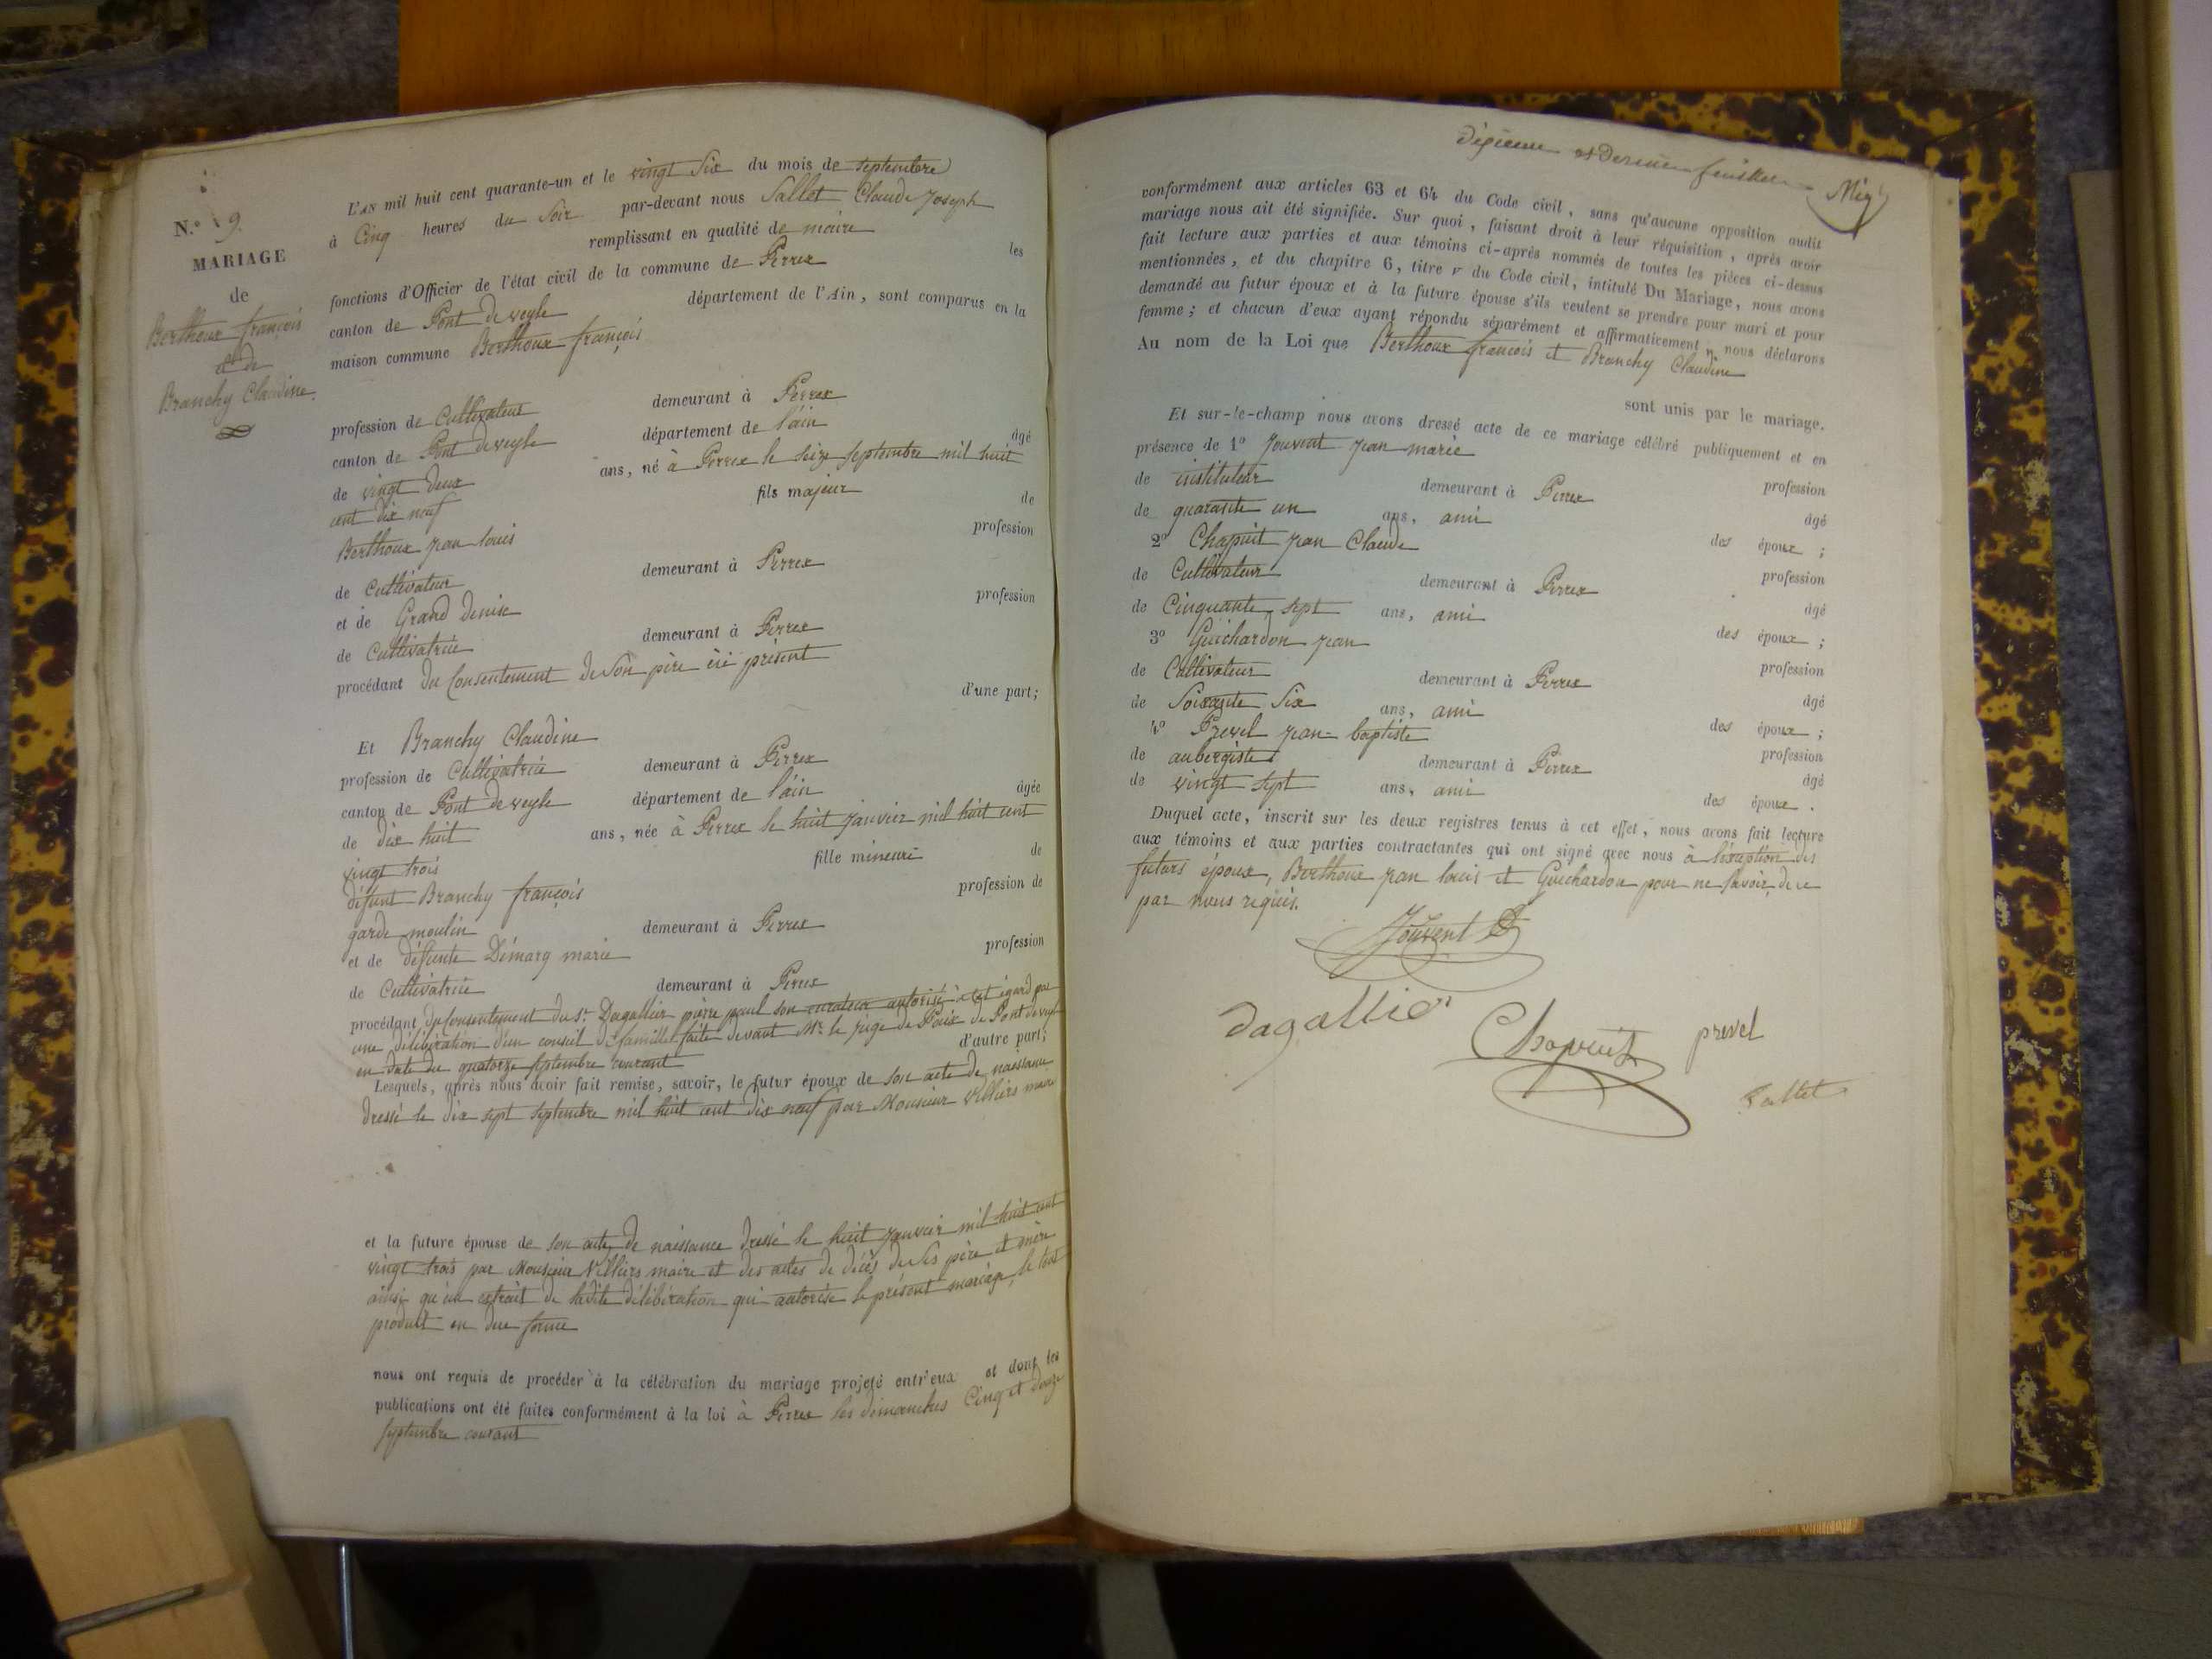 N.º 9.
MARIAGE
de
Berthoux françois
et de
Branchy Claudine.
L'AN mil huit cent quarante-un et le vingt Six du mois de septembre
à Cinq heures du Soir par-devant nous Sallet Claude Joseph
remplissant en qualité de maire les
fonctions d'Officier de l'état civil de la commune de Perrex
canton de Pont de veyle département de l'Ain, sont comparus en la
maison commune Berthoux françois
profession de Cultivateur demeurant à Perrex
canton de Pont de veyle département de l'ain âgé
de vingt deux ans, né à Perrex le Seize Septembre mil huit
cent dix neuf fils majeur de
Berthoux jean louis profession
de Cultivateur demeurant à Perrex
et de Grand Denise profession
de Cultivatrice demeurant à Perrex
procédant du Consentement de Son père ici présent
d'une part;
Et Branchy Claudine
profession de Cultivatrice demeurant à Perrex
canton de Pont de veyle département de l'ain âgée
de dix huit ans, née à Perrex le huit janvier mil huit cent
vingt trois fille mineure de
défunt Branchy françois profession de
garde moulin demeurant à Perrex
et de défunte Démarq marie profession
de Cultivatrice demeurant à Perrex
procédant du consentement du Sr. Dagallier pierre paul son curateur autorisé à cet égard par
une délibération d'un conseil de famille faite devant Mr. le juge de Paix de Pont de veyle
en date du quatorze Septembre courant d'autre part;
Lesquels, après nous avoir fait remise, savoir, le futur époux de son acte de naissance
dressé le dix sept septembre mil huit cent dix neuf par Monsieur Villiers maire
et la future épouse de son acte de naissance dressé le huit janvier mil huit cent
vingt trois par Monsieur Villiers maire et des actes de décès de Ses père et mère
ainsi qu'un extrait de ladite délibération qui autorise le présent mariage, le tout
produit en due forme
nous ont requis de procéder à la célébration du mariage projeté entr'eux et dont les
publications ont été faites conformément à la loi à Perrex les dimanches Cinq et douze
septembre courant
conformément aux articles 63 et 64 du Code civil, sans qu'aucune opposition audit
mariage nous ait été signifiée. Sur quoi, faisant droit à leur réquisition, après avoir
fait lecture aux parties et aux témoins ci-après nommés de toutes les pièces ci-dessus
mentionnées, et du chapitre 6, titre v du Code civil, intitulé Du Mariage, nous avons
demandé au futur époux et à la future épouse s'ils veulent se prendre pour mari et pour
femme; et chacun d'eux ayant répondu séparément et affirmativement, nous déclarons
Au nom de la Loi que Berthoux francois et Branchy Claudine
sont unis par le mariage.
Et sur-le-champ nous avons dressé acte de ce mariage célébré publiquement et en
présence de 1º Jouvent jean marie profession
de instituteur demeurant à Perrex âgé
de quarante un ans, ami des époux;
2º Chapuit jean Claude profession
de Cultivateur demeurant à Perrex âgé
de Cinquante sept ans, ami des époux;
3º Guichardon jean profession
de Cultivateur demeurant à Perrex âgé
de Soixante Six ans, ami des époux;
4º Prevel jean-baptiste profession
de aubergiste demeurant à Perrex âgé
de vingt Sept ans, ami des époux.
Duquel acte, inscrit sur les deux registres tenus à cet effet, nous avons fait lecture
aux témoins et aux parties contractantes qui ont signé avec nous à l'éxeption des
futurs époux, Berthoux jean louis et Guichardon pour ne Savoir, de ce
par nous requis.
Jouvent
dagallier
Chapuit
prevel
Sallet